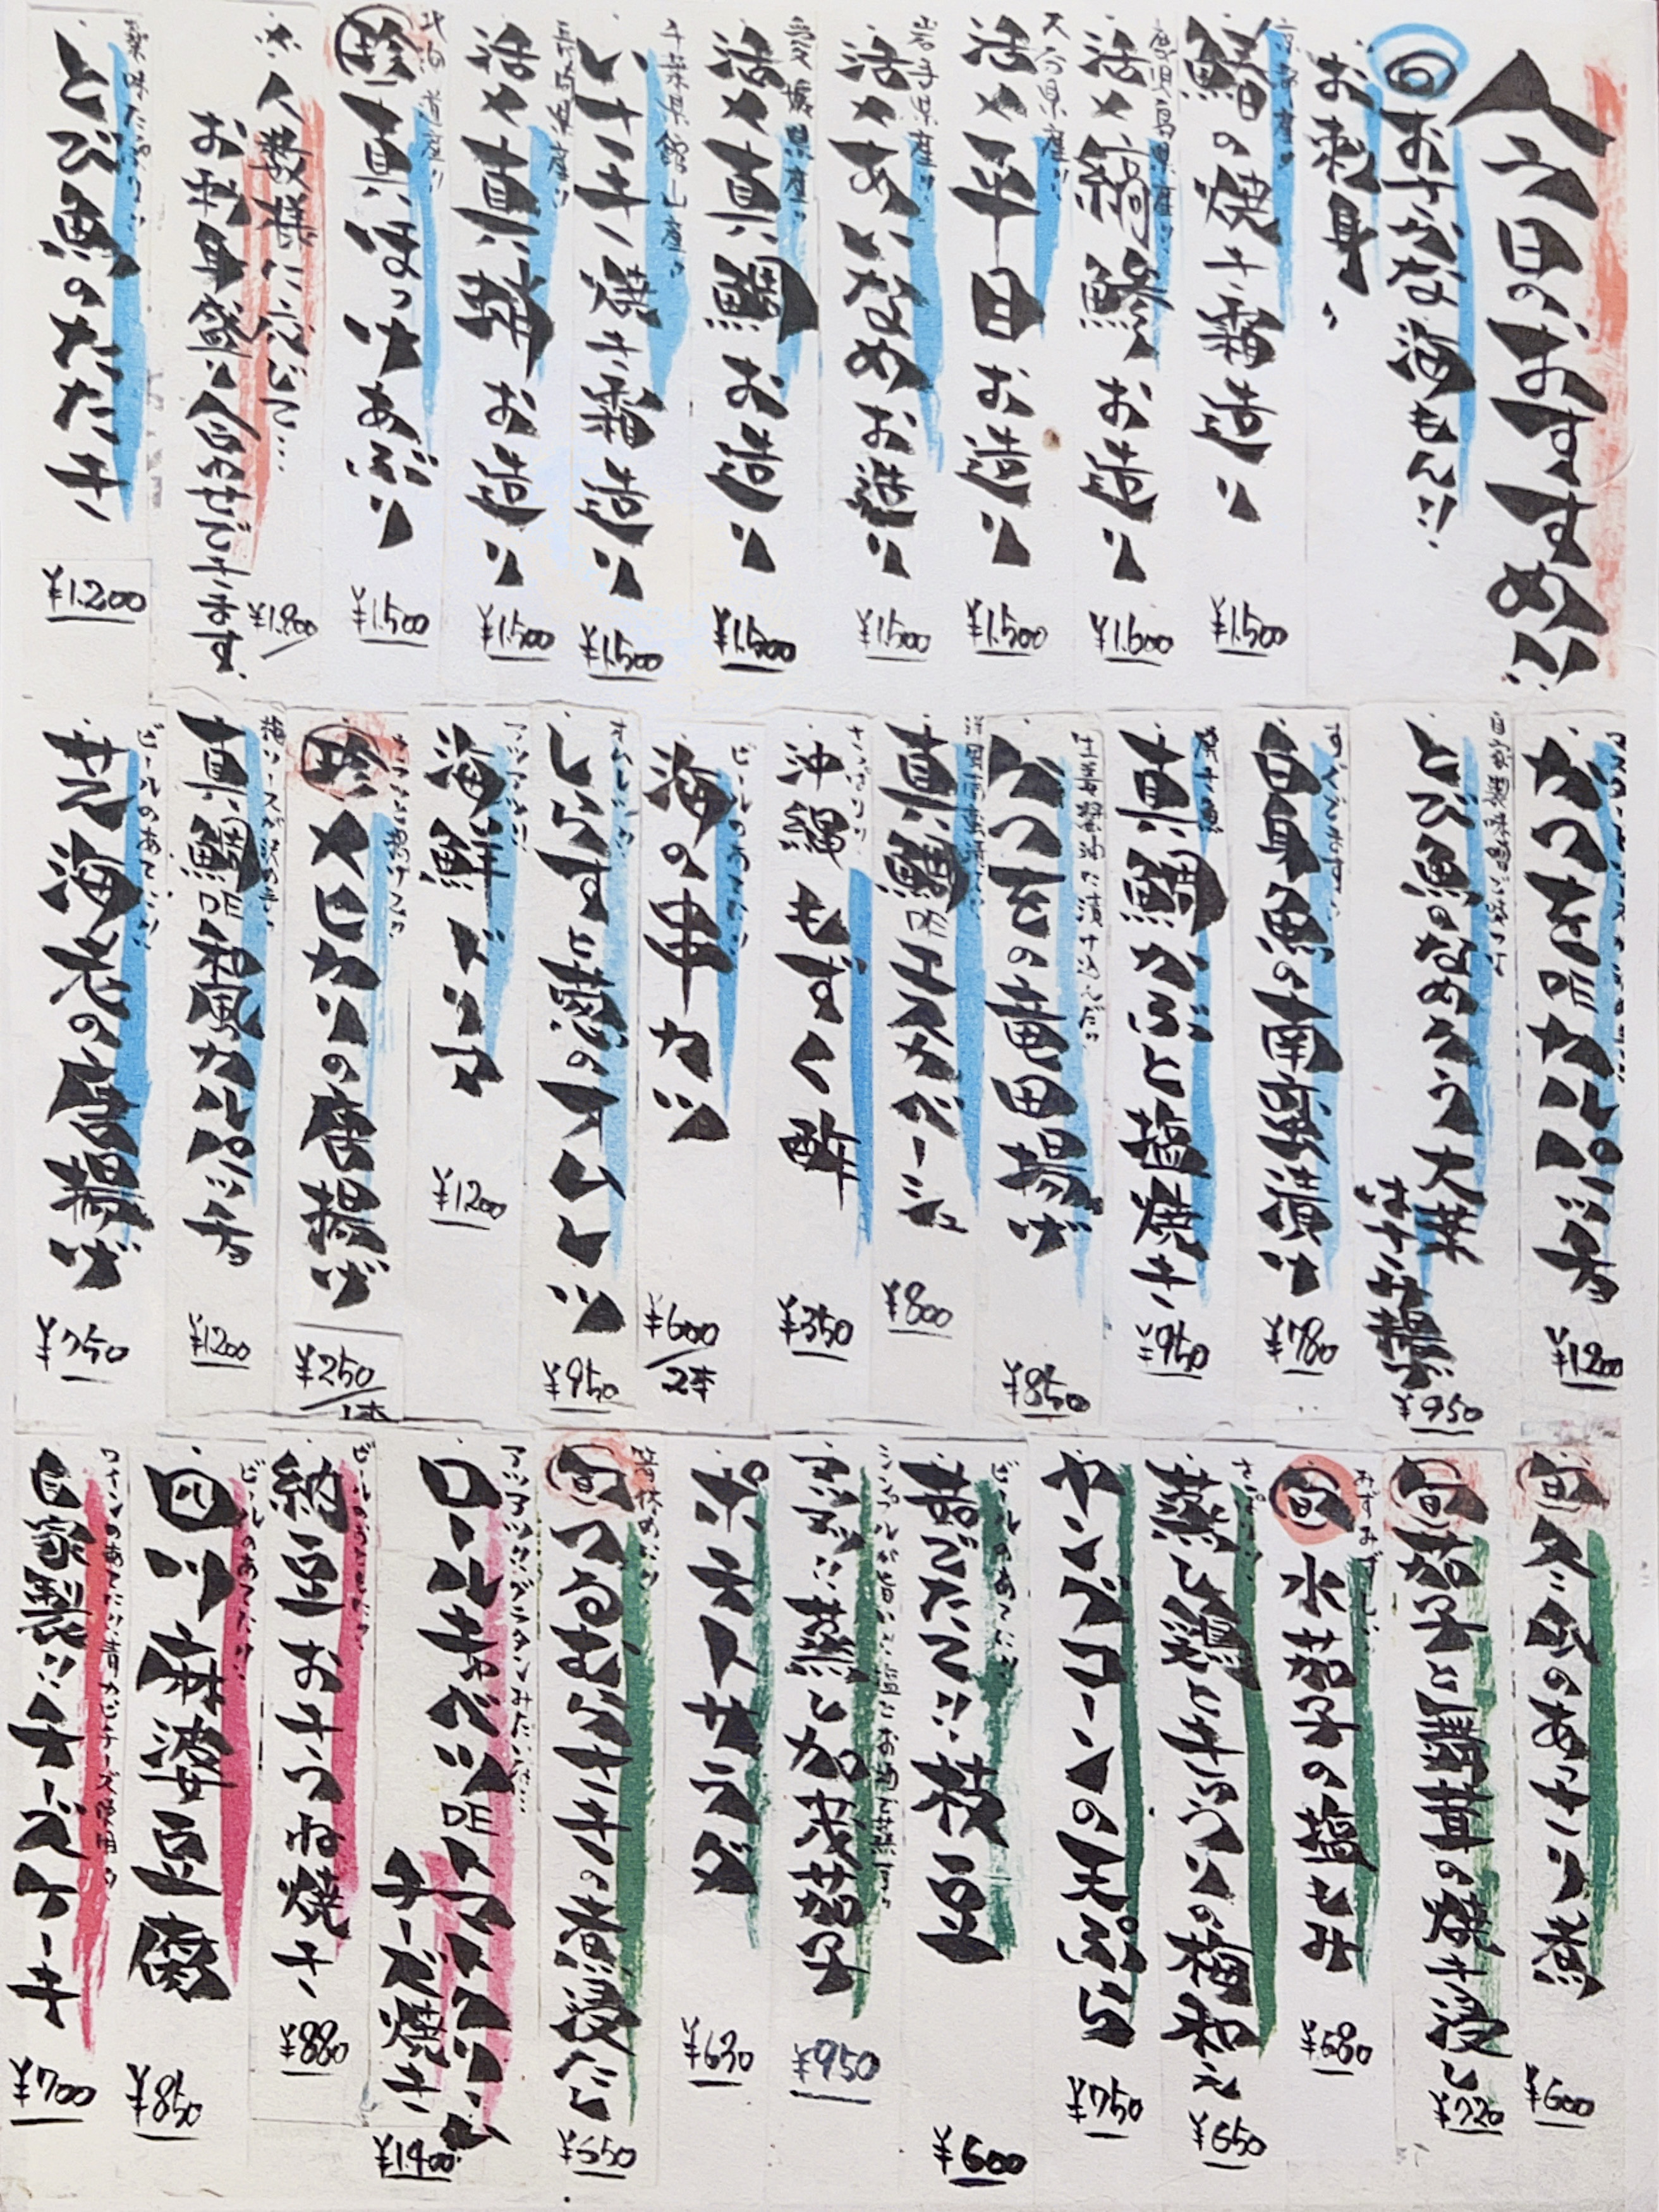 今日のおすすめ!!
旬 お手がな海もん!!
お刺身、
京都産!!
鰆の焼き霜造り
¥1.500
鹿児島県産!!
活〆縞鯵お造り
¥1.600
大分県産!!
活〆平目お造り
¥1.500
岩手県産!!
活〆あいなめお造り
¥1.500
愛媛県産!!
活〆真鯛お造り
¥1.500
千葉県館山産!!
いさき焼き霜造り
¥1.500
長崎県産!!
活〆真鯵お造り
¥1.500
北海道産!!
珍 真ほっけあぶり
¥1.500
※人数様に応じて…
お刺身盛り合わせできます。
¥1.900
薬味たっぷり!!
とび魚のたたき
¥1.200
かつを的カルパッチョ
¥1200
とび魚のなめろう大葉
はさみ揚げ
¥950
すぐでます!!
白身魚の南蛮漬け
¥780
真鯛かぶと塩焼き
¥950
生姜醤油に漬け込んだ!!
かつをの竜田揚げ
¥850
真鯛的エスカベーシュ
¥800
さっぱり!!
沖縄もずく酢
¥350
ビールのあてに!!
海の串カツ
¥600/2本
しらすと葱のオムレツ
¥950
アツアツ!!
海鮮ドリア
¥1200
珍 メヒカリの唐揚げ
¥250/1本
真鯛的和風カルパッチョ
¥1200
ビールのあてに!!
芝海老の唐揚げ
¥750
旬 冬瓜のあっさり煮
¥600
旬 茄子と舞茸の焼き浸し
¥720
おすすめです!!
旬 水茄子の塩もみ
¥680
さっぱり!!
蒸し鶏ときゅうりの梅和え
¥650
ヤングコーンの天ぷら
¥750
ビールのあてに!!
茹でたて!!枝豆
¥600
ふぶ蒸し加茂茄子
¥950
ポテトサラダ
¥630
箸休めに!!
旬 つるむらさきの煮浸たし
¥550
アツアツ!!グラタンみたいな!!…
ロールキャベツ的トマトソース
チーズ焼き
¥1400
ビールのあてに!!
納豆おきつね焼き
¥880
ビールのあてに!!
四川麻婆豆腐
¥850
ワインのあてに!!青カビチーズ使用!!
自家製!!チーズケーキ
¥700